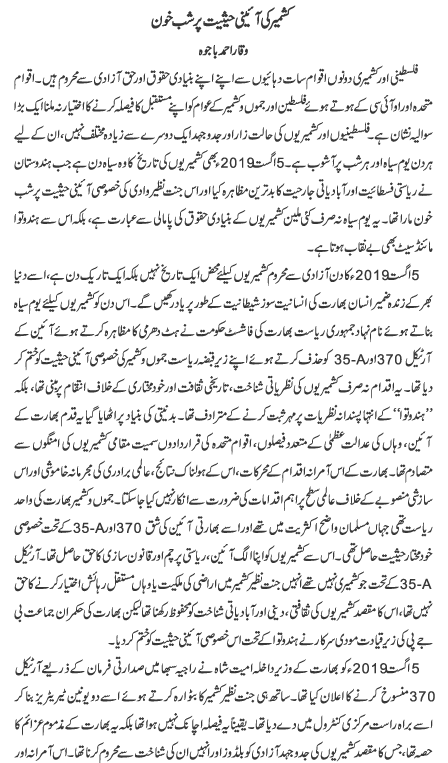 کشمیر کی آئینی حیثیت پر شب خون
وقار احمد باجوہ
فلسطینی اور کشمیری دونوں اقوام سات دہائیوں سے اپنے اپنے بنیادی حقوق اور حق آزادی سے محروم ہیں۔ اقوام
متحدہ اور او آئی سی کے ہوتے ہوئے فلسطین اور جموں و کشمیر کے عوام کو اپنے مستقبل کا فیصلہ کرنے کا اختیار نہ ملنا ایک بڑا
سوالیہ نشان ہے۔ فلسطینیوں اور کشمیریوں کی حالت زار اور جدوجہد ایک دوسرے سے زیادہ مختلف نہیں، ان کے لیے
ہر دن یوم سیاہ اور ہر شب پر آشوب ہے۔ 5 اگست 2019ء بھی کشمیریوں کی تاریخ کا وہ سیاہ دن ہے جب ہندوستان
نے ریاستی فسطائیت اور آبادیاتی جارحیت کا بدترین مظاہرہ کیا اور اس جنت نظیر وادی کی خصوصی آئینی حیثیت پر شب
خون مارا تھا۔ یہ یوم سیاہ نہ صرف کئی ملین کشمیریوں کے بنیادی حقوق کی پامالی سے عبارت ہے، بلکہ اس سے ہندوتوا
مائنڈ سیٹ بھی بے نقاب ہوتا ہے۔
5 اگست 2019ء کا دن آزادی سے محروم کشمیریوں کیلئے محض ایک تاریخ نہیں بلکہ ایک تاریک دن ہے، اسے دنیا
بھر کے زندہ ضمیر انسان بھارت کی انسانیت سوز شیطانیت کے طور پر یاد رکھیں گے۔ اس دن کو کشمیریوں کیلئے یوم سیاہ
بناتے ہوئے نام نہاد جمہوری ریاست بھارت کی فاشسٹ حکومت نے ہٹ دھرمی کا مظاہرہ کرتے ہوئے آئین کے
آرٹیکل 370 اور 35-A کو حذف کرتے ہوئے اپنے زیر قبضہ ریاست جموں و کشمیر کی خصوصی آئینی حیثیت کو ختم کر
دیا۔ یہ اقدام نہ صرف کشمیریوں کی نظریاتی شناخت، تاریخی ثقافت اور خود مختاری کے خلاف انتقام پر مبنی تھا، بلکہ
”ہندوتوا“ کے انتہا پسندانہ نظریات پر مہر ثبت کرنے کے مترادف تھا۔ بدنیتی کی بنیاد پر اٹھایا گیا یہ قدم بھارت کے
آئین، وہاں کی عدالت عظمیٰ کے متعدد فیصلوں، اقوام متحدہ کی قراردادوں سمیت مقامی کشمیریوں کی امنگوں سے
متصادم تھا۔ بھارت کے اس آمرانہ اقدام کے محرکات، اس کے ہولناک نتائج، عالمی برادری کی مجرمانہ خاموشی اور اس
سازشی منصوبے کے خلاف عالمی سطح پر اہم اقدامات کی ضرورت سے انکار نہیں کیا جا سکتا۔ جموں و کشمیر بھارت کی واحد
ریاست تھی جہاں مسلمان واضح اکثریت میں تھے اور اسے بھارتی آئین کی شق 370 اور 35-A کے تحت خصوصی
خود مختار حیثیت حاصل تھی۔ اس سے کشمیریوں کو اپنا الگ آئین، ریاستی پرچم اور قانون سازی کا حق حاصل تھا۔ آرٹیکل
35-A کے تحت جو کشمیری نہیں تھے انہیں جنت نظیر کشمیر میں اراضی کی ملکیت یا وہاں مستقل رہائش اختیار کرنے کا حق
نہیں تھا، اس کا مقصد کشمیریوں کی ثقافتی، دینی اور آبادیاتی شناخت کو محفوظ رکھنا تھا لیکن بھارت کی حکمران جماعت بی
جے پی کی زیر قیادت مودی سرکار نے ہندوتوا کے تحت اس خصوصی آئینی حیثیت کو ختم کر دیا۔
5 اگست 2019ء کو بھارت کے وزیر داخلہ امیت شاہ نے راجیہ سبھا میں صدارتی فرمان کے ذریعے آرٹیکل
370 منسوخ کرنے کا اعلان کیا تھا۔ ساتھ ہی جنت نظیر کشمیر کا بٹوارہ کرتے ہوئے اسے دو یونین ٹیریٹریز بنا کر
اسے براہ راست مرکزی کنٹرول میں دے دیا تھا۔ یقیناً یہ فیصلہ اچانک نہیں ہوا تھا بلکہ یہ بھارت کے مذموم عزائم کا
حصہ تھا، جس کا مقصد کشمیریوں کی جدوجہد آزادی کو بلڈوز اور انہیں ان کی شناخت سے محروم کرنا تھا۔ اس آمرانہ اور